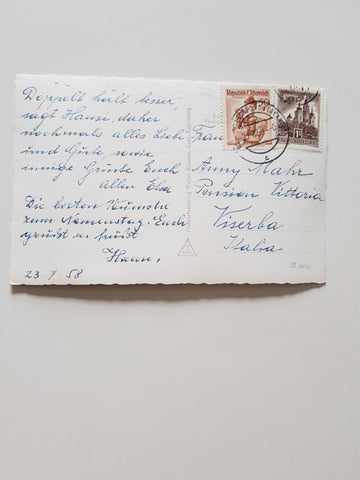 Doppelt hält besser,
sagt Hansi, daher
nochmals alles Liebe
und Gute, sowie
innige Grüsse Euch
Allen Elsa
Die besten Wünsche
zum Namenstag. Euch
grüßt u. küßt
Hansi.
23.7.58
Republik Österreich
Frau
Anny Mahr
Pension Vittoria
Viserba
Italia